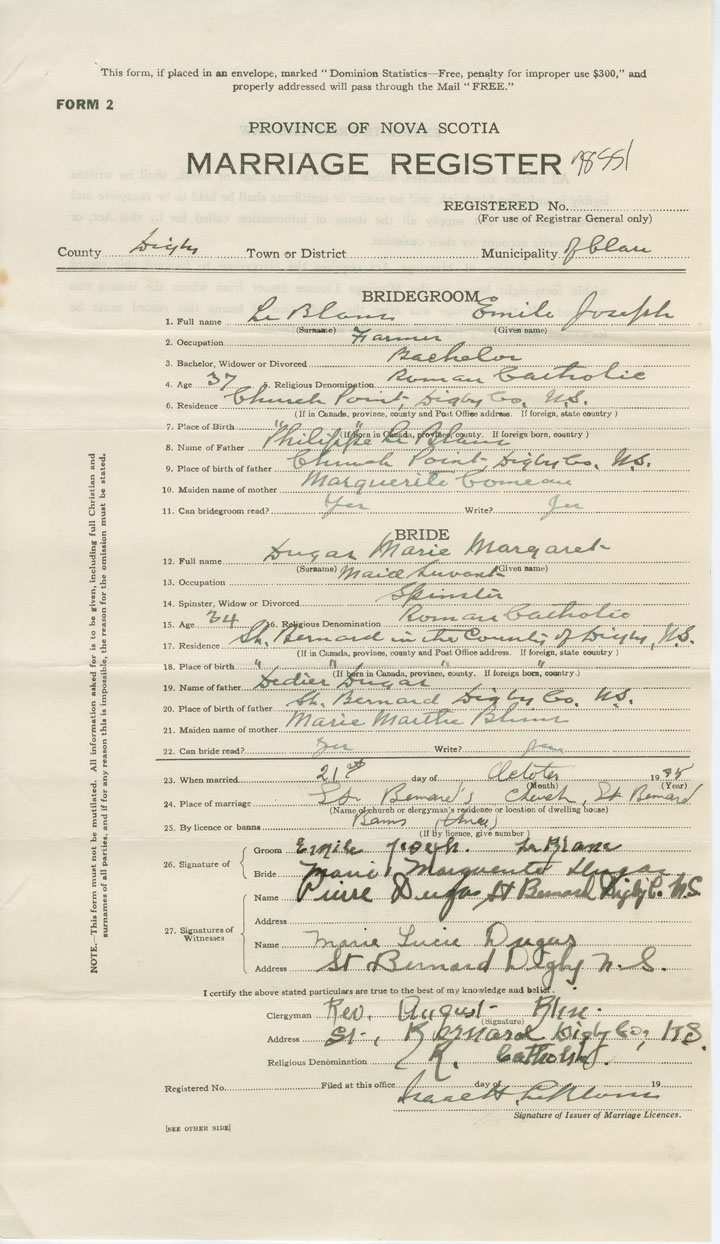 This form, if placed in an envelope, marked "Dominion Statistics—Free, penalty for improper use $300," and
properly addressed will pass through the Mail "FREE."
FORM 2
PROVINCE OF NOVA SCOTIA
MARRIAGE REGISTER
REGISTERED No.
(For use of Registrar General only)
County Digby Town or District Municipality of Clare
BRIDEGROOM
1. Full name Le Blanc Emile Joseph
(Surname) (Given name)
2. Occupation Farmer
3. Bachelor, Widower or Divorced Bachelor
4. Age 37 5. Religious Denomination Roman Catholic
6. Residence Church Point, Digby Co. N.S.
(If in Canada, province, county and Post Office address. If foreign, state country)
7. Place of Birth " "
(If born in Canada, province, county. If foreign born, country)
8. Name of Father Philippe Le Blanc
9. Place of birth of father Church Point, Digby Co. N.S.
10. Maiden name of mother Marguerite Comeau
11. Can bridegroom read? Yes Write? Yes
BRIDE
12. Full name Dugas Marie Margaret
(Surname) (Given name)
13. Occupation Maid Servant
14. Spinster, Widow or Divorced Spinster
15. Age 34 16. Religious Denomination Roman Catholic
17. Residence St. Bernard in the County of Digby, N.S.
(If in Canada, province, county and Post Office address. If foreign, state country)
18. Place of birth " " " "
(If born in Canada, province, county. If foreign born, country.)
19. Name of father Dedier Dugas
20. Place of birth of father St. Bernard Digby Co. N.S.
21. Maiden name of mother Marie Marthe
22. Can bride read? Yes Write? Yes
23. When married 21st day of October 19
(Month) (Year)
24. Place of marriage St. Bernard's Church, St Bernard
(Name of church or clergyman's residence or location of dwelling house)
25. By licence or banns Banns
(If by licence, give number)
26. Signature of
Groom Emile Joseph. LeBlanc
Bride Marie Marguerite Dugas
27. Signatures of Witnesses
Name Pierre Dugas, St Bernard Digby Co. N.S.
Address
Name Marie Lucie Dugas
Address St Bernard Digby N.S.
I certify the above stated particulars are true to the best of my knowledge and belief.
Clergyman Rev. August
(Signature)
Address St., Bernard Digby Co, N.S.
Religious Denomination R. Catholic.
Registered No. Filed at this office day of 19
Isaac H. LeBlanc
Signature of Issuer of Marriage Licences.
[SEE OTHER SIDE]
NOTE.—This form must not be mutilated. All information asked for is to be given, including full Christian and
surnames of all parties, and if for any reason this is impossible, the reason for the omission must be stated.